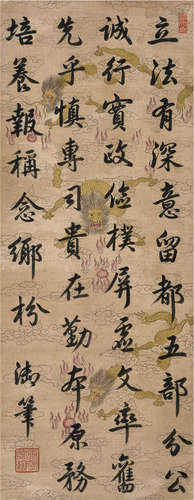 立法有深意留都五部分公
誠行實政儉樸屏虛文率舊
先乎慎專司貴在勤本原務
培養報稱念鄉枌
御筆